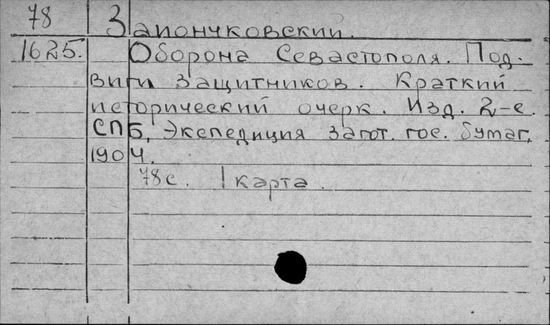 78 Зайончковский.
1625. Оборона Севастополя. Под-
виги защитников. Краткий
исторический очерк. Изд. 2-е.
СПБ, Экспедиция загот. гос. бумаг,
1904.
78 с. 1 карта.